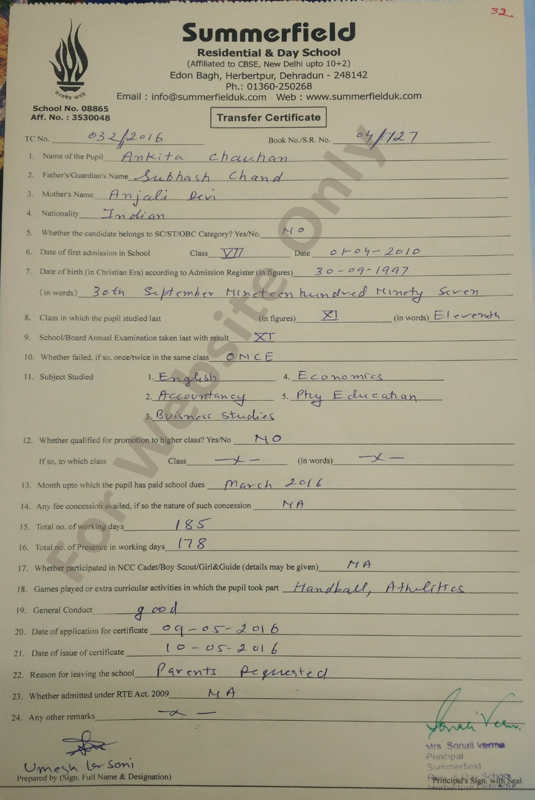 32
Summerfield
Residential & Day School
(Affiliated to CBSE, New Delhi upto 10+2)
Edon Bagh, Herbertpur, Dehradun - 248142
Ph.: 01360-250268
Email : info@summerfielduk.com Web : www.summerfielduk.com
School No. 08865
Aff. No. : 3530048
Transfer Certificate
TC No. 032/2016 Book No./S.R. No. 04/727
1. Name of the Pupil Ankita Chauhan
2. Father's/Guardian's Name Subhash Chand
3. Mother's Name Anjali Devi
4. Nationality Indian
5. Whether the candidate belongs to SC/ST/OBC Category? Yes/No. NO
6. Date of first admission in School Class VII Date 01-04-2010
7. Date of birth (in Christian Era) according to Admission Register (in figures) 30-09-1997
(in words) 30th September Nineteen hundred Ninety Seven
8. Class in which the pupil studied last (in figures) XI (in words) Eleventh
9. School/Board Annual Examination taken last with result XI
10. Whether failed, if so, once/twice in the same class ONCE
11. Subject Studied 1. English 4. Economics
2. Accountancy 5. Phy Education
3. Buisness Studies
12. Whether qualified for promotion to higher class? Yes/No NO
If so, to which class Class —x— (in words) —x—
13. Month upto which the pupil has paid school dues March 2016
14. Any fee concession availed, if so the nature of such concession NA
15. Total no. of working days 185
16. Total no. of Presence in working days 178
17. Whether participated in NCC Cadet/Boy Scout/Girl&Guide (details may be given) NA
18. Games played or extra curricular activities in which the pupil took part Handball, Athelitics
19. General Conduct good
20. Date of application for certificate 09-05-2016
21. Date of issue of certificate 10-05-2016
22. Reason for leaving the school Parents Requested
23. Whether admitted under RTE Act. 2009 NA
24. Any other remarks —x—
For Website Only
Sonali Verma
Mrs. Sonali Verma
Principal
Summerfield
Day School
Umesh
Prepared by (Sign. Full Name & Designation) Principal's Sign. with Seal